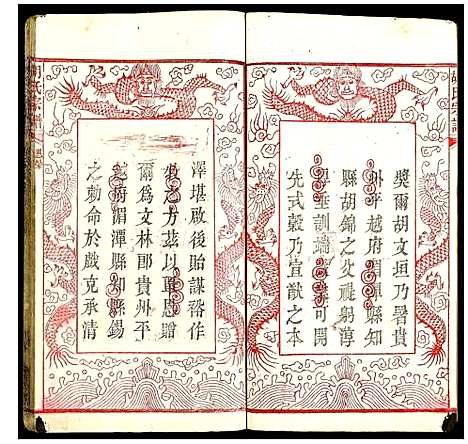 奬爾胡文垣乃署貴
州平越府湄潭縣知
縣胡錦之父褆躬淳
厚垂訓端嚴可開
先式榖乃宣猷之本
澤堪啟後貽謀裕作
牧之方茲以覃恩贈
爾爲文林郎貴州平
越府湄潭縣知縣錫
之勅命於戲克承清
胡氏宗譜
胡氏宗譜